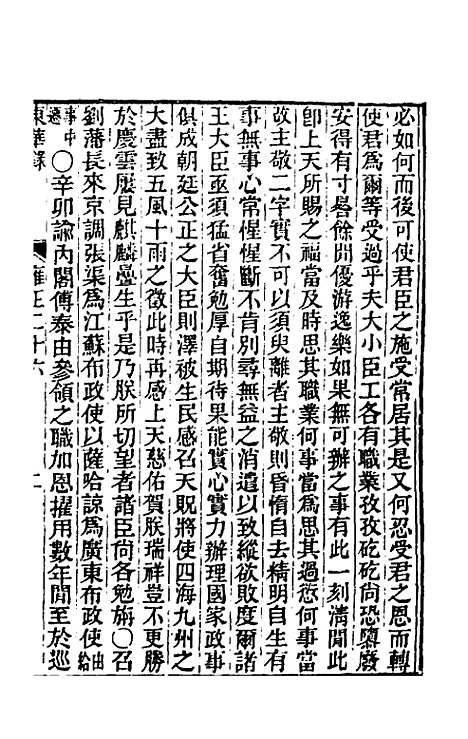 必如何而後可使君臣之施受常居其是又何忍受君之恩而轉
使君爲爾等受過乎夫大小臣工各有職業孜孜矻矻尚恐隳廢
安得有寸晷餘閒優游逸樂如果無可辦之事有此一刻淸閒此
卽上天所賜之福當及時思其職業何事當爲思其過愆何事當
改主敬二字實不可以須臾離者主敬則昏惰自去精明自生有
事無事心常惺惺斷不肯別尋無益之消遣以致縱欲敗度爾諸
王大臣亟須猛省奮勉厚自期待果能實心實力辦理國家政事
俱成朝廷公正之大臣則澤被生民感召天貺將使四海九州之
大盡致五風十雨之徵此時再感上天慈佑賀朕瑞祥豈不更勝
於慶雲屢見麒麟疊生乎是乃朕所切望者諸臣尙各勉旃〇召
劉藩長來京調張渠爲江蘇布政使以薩哈諒爲廣東布政使由給
事中遷〇辛卯諭內閣傅泰由參領之職加恩擢用數年閒至於巡
東華錄 雍正二十六 二